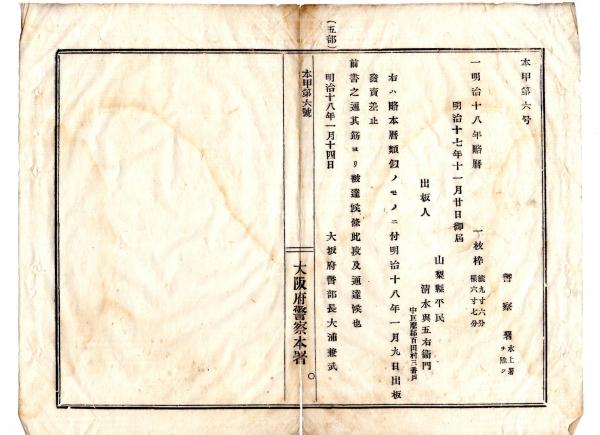 本甲第六号
警察署 水上署ヲ除ク
一明治十八年略暦 一枚摺 縦九寸六分 横六寸七分
明治十七年十一月廿日御届
山梨縣平民
出板人 清水與五右衛門
中巨摩郡百田村三番戸
右ハ略本暦類似ノモノニ付明治十八年一月九日出板
發賣差止
前書之通其筋ヨリ被達候條此段及通達候也
明治十八年一月十四日 大坂府警部長大浦兼武
本甲第六號
大阪府警察本署
(五部)